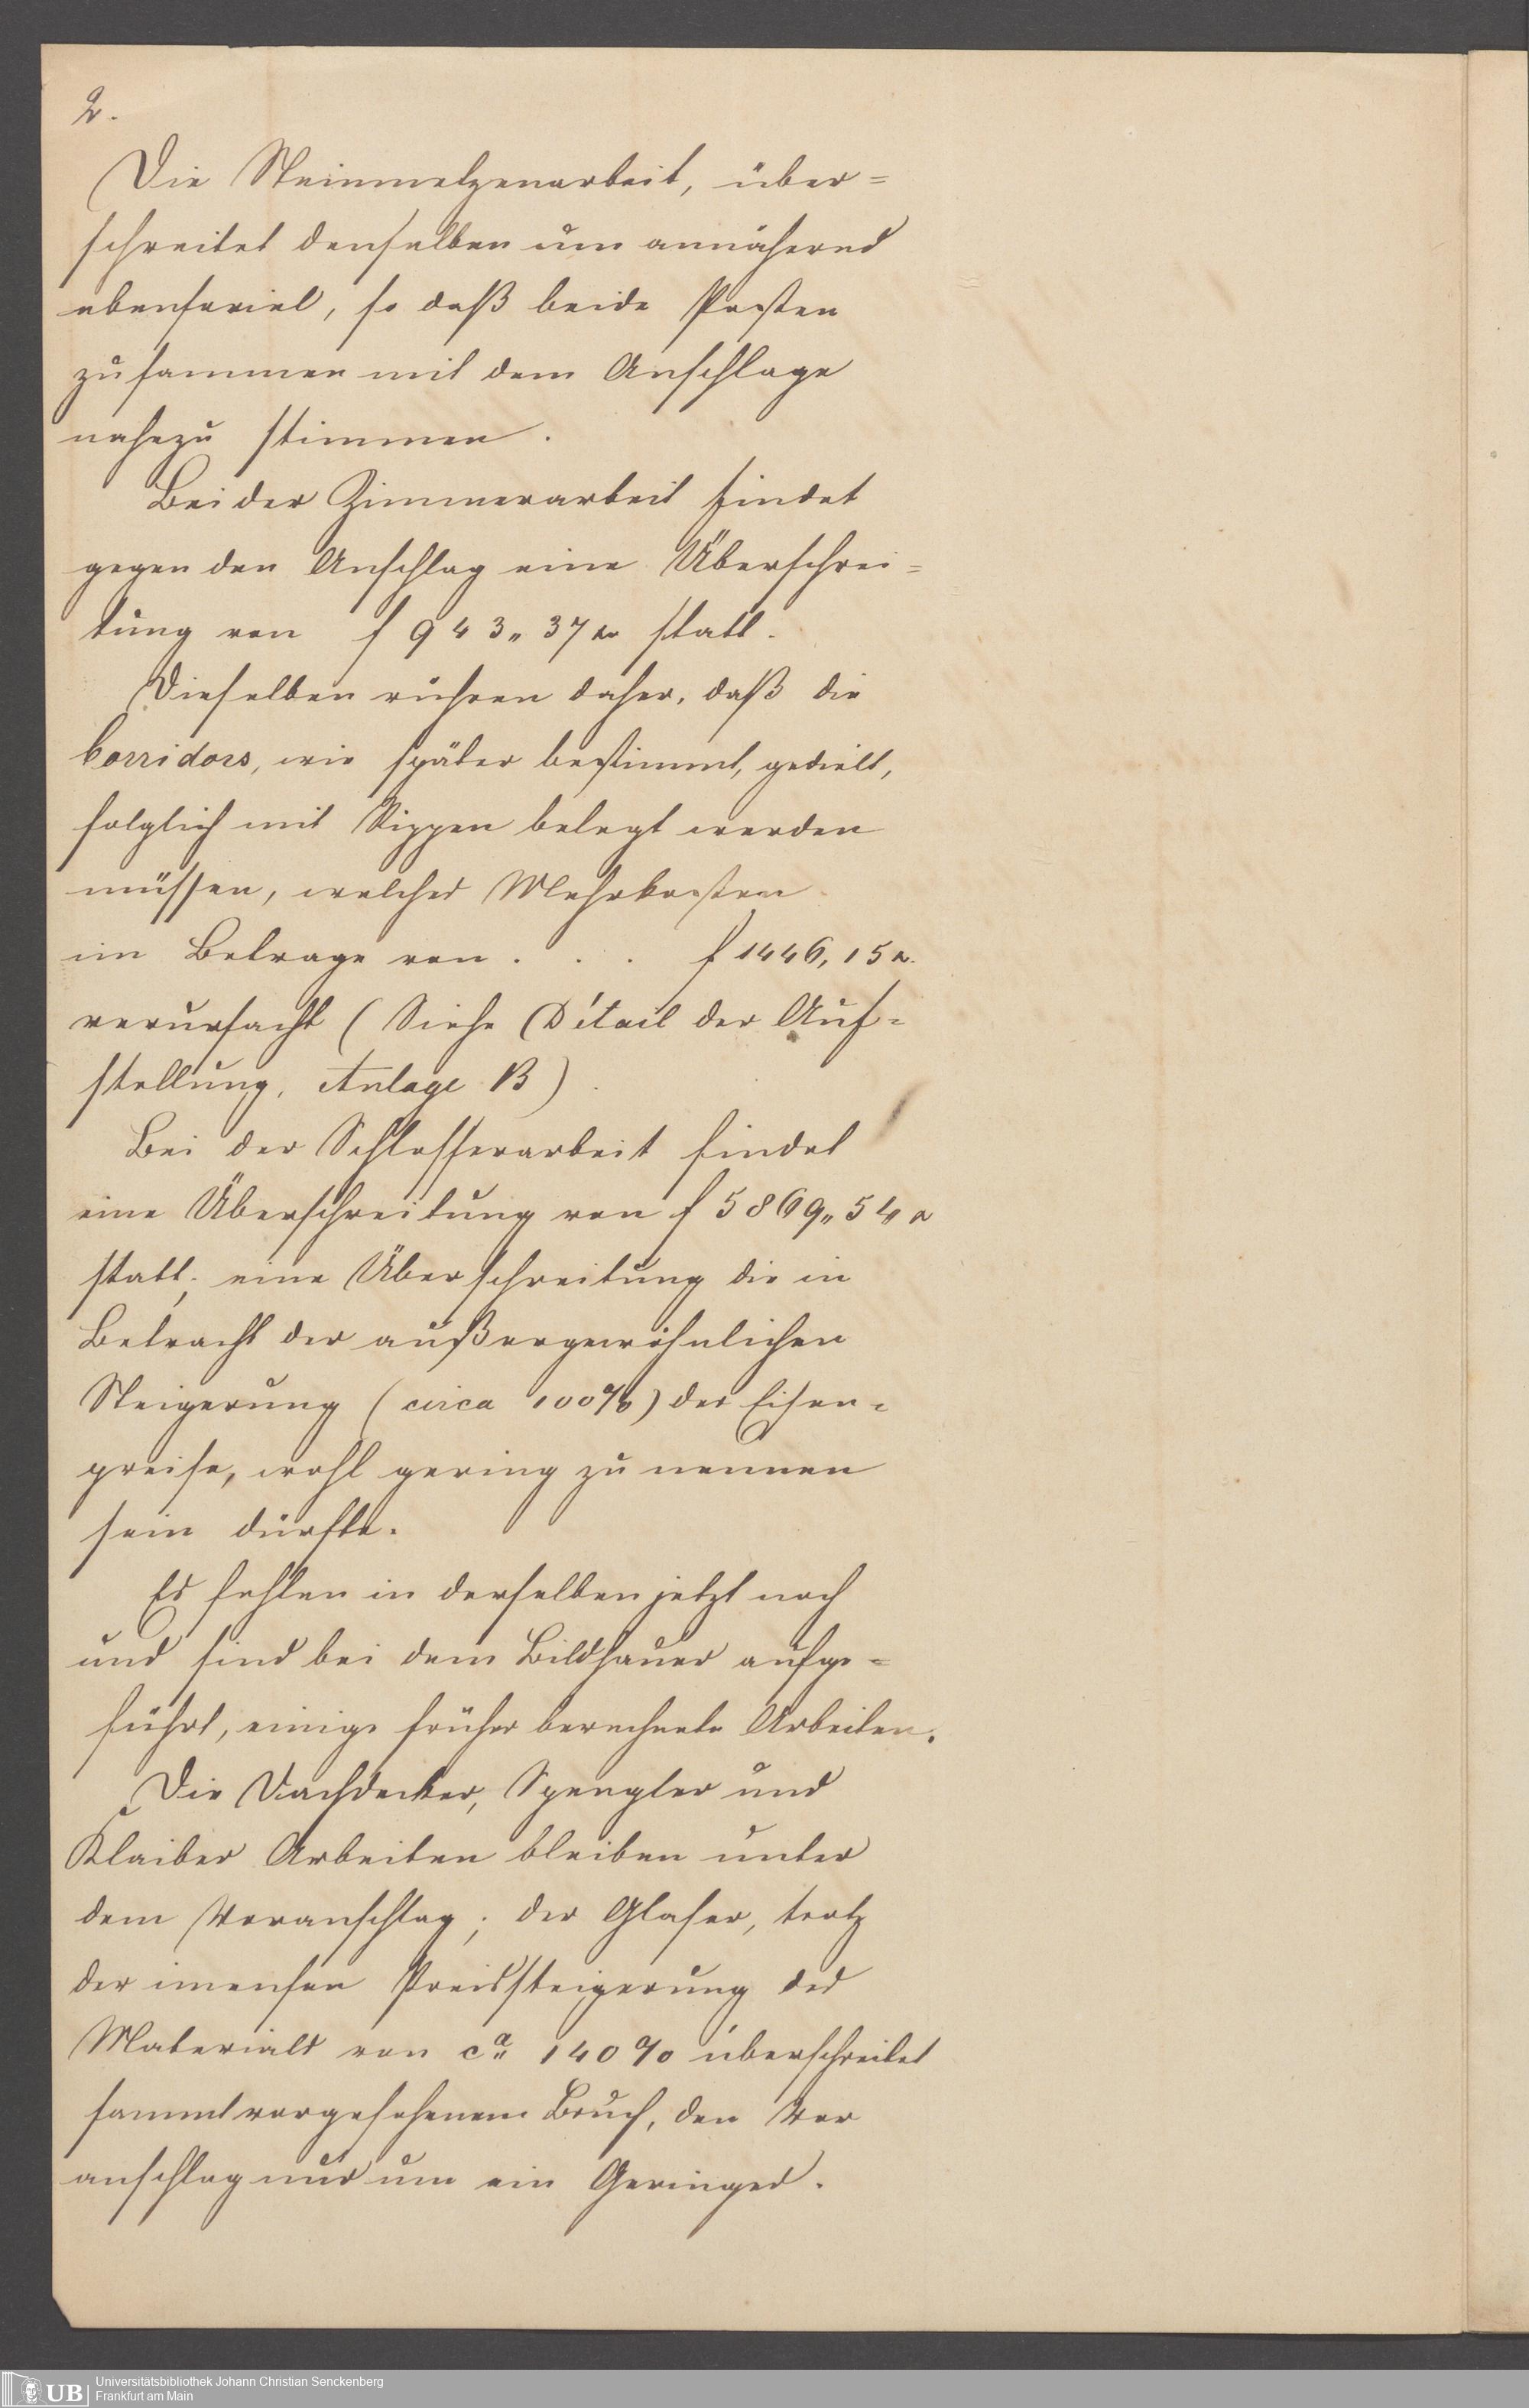 2.
Die Steinmetzenarbeit, über=
schreitet denselben um annähernd
ebensoviel, so daß beide Posten
zusammen mit dem Anschlage
nahezu stimmen.
Bei der Zimmerarbeit findet
gegen den Anschlag eine Überschrei=
tung von f 943„37 x statt.
Dieselben rühren daher, daß die
Corridors, wie später bestimmt, gedielt,
folglich mit Rippen belegt werden
müssen, welches Mehrkosten
im Betrage von . . . f 1446, 15 x.
verursacht (Siehe Détail der Auf=
stellung, Anlage B).
Bei der Schlosserarbeit findet
eine Überschreitung von f 5869„54 x
statt; eine Überschreitung die in
Betracht der außergewöhnlichen
Steigerung (circa 100%) der Eisen=
preise, wohl gering zu nennen
sein dürfte.
Es fehlen in derselben jetzt noch
und sind bei dem Bildhauer aufge=
führt, einige früher berechnete Arbeiten.
Die Dachdecker, Spengler und
Klaiber Arbeiten bleiben unter
dem Voranschlag; der Glaser, trotz
der imensen Preissteigerung des
Materials von ca 140% überschreitet
sammt vorgesehenem Bruch, den Vor
anschlag nur um ein Geringes.
UB
Universitätsbibliothek Johann Christian Senckenberg
Frankfurt am Main